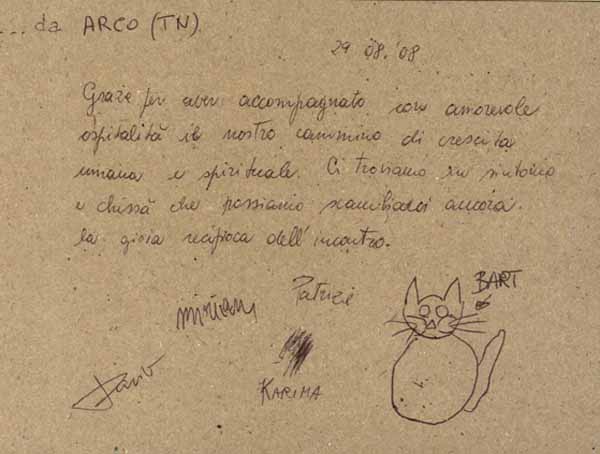 ... da ARCO (TN)
29 08.'08
Grazie per aver accompagnato con amorevole
ospitalità il nostro cammino di crescita
umana e spirituale. Ci troviamo in sintonia
e chissà che possiamo scambiarci ancora
la gioia recipoca dell'incontro.
Patrizi
BART
miriam
Dario
KARIMA